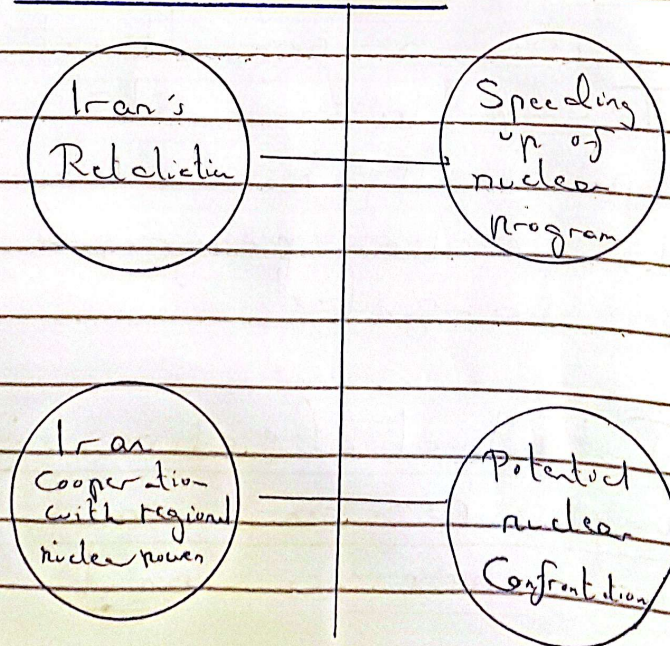 Iran's
Retaliation
Speeding
up of
nuclear
program
Iran
cooperation
with regional
nuclear power
Potential
nuclear
Confrontation